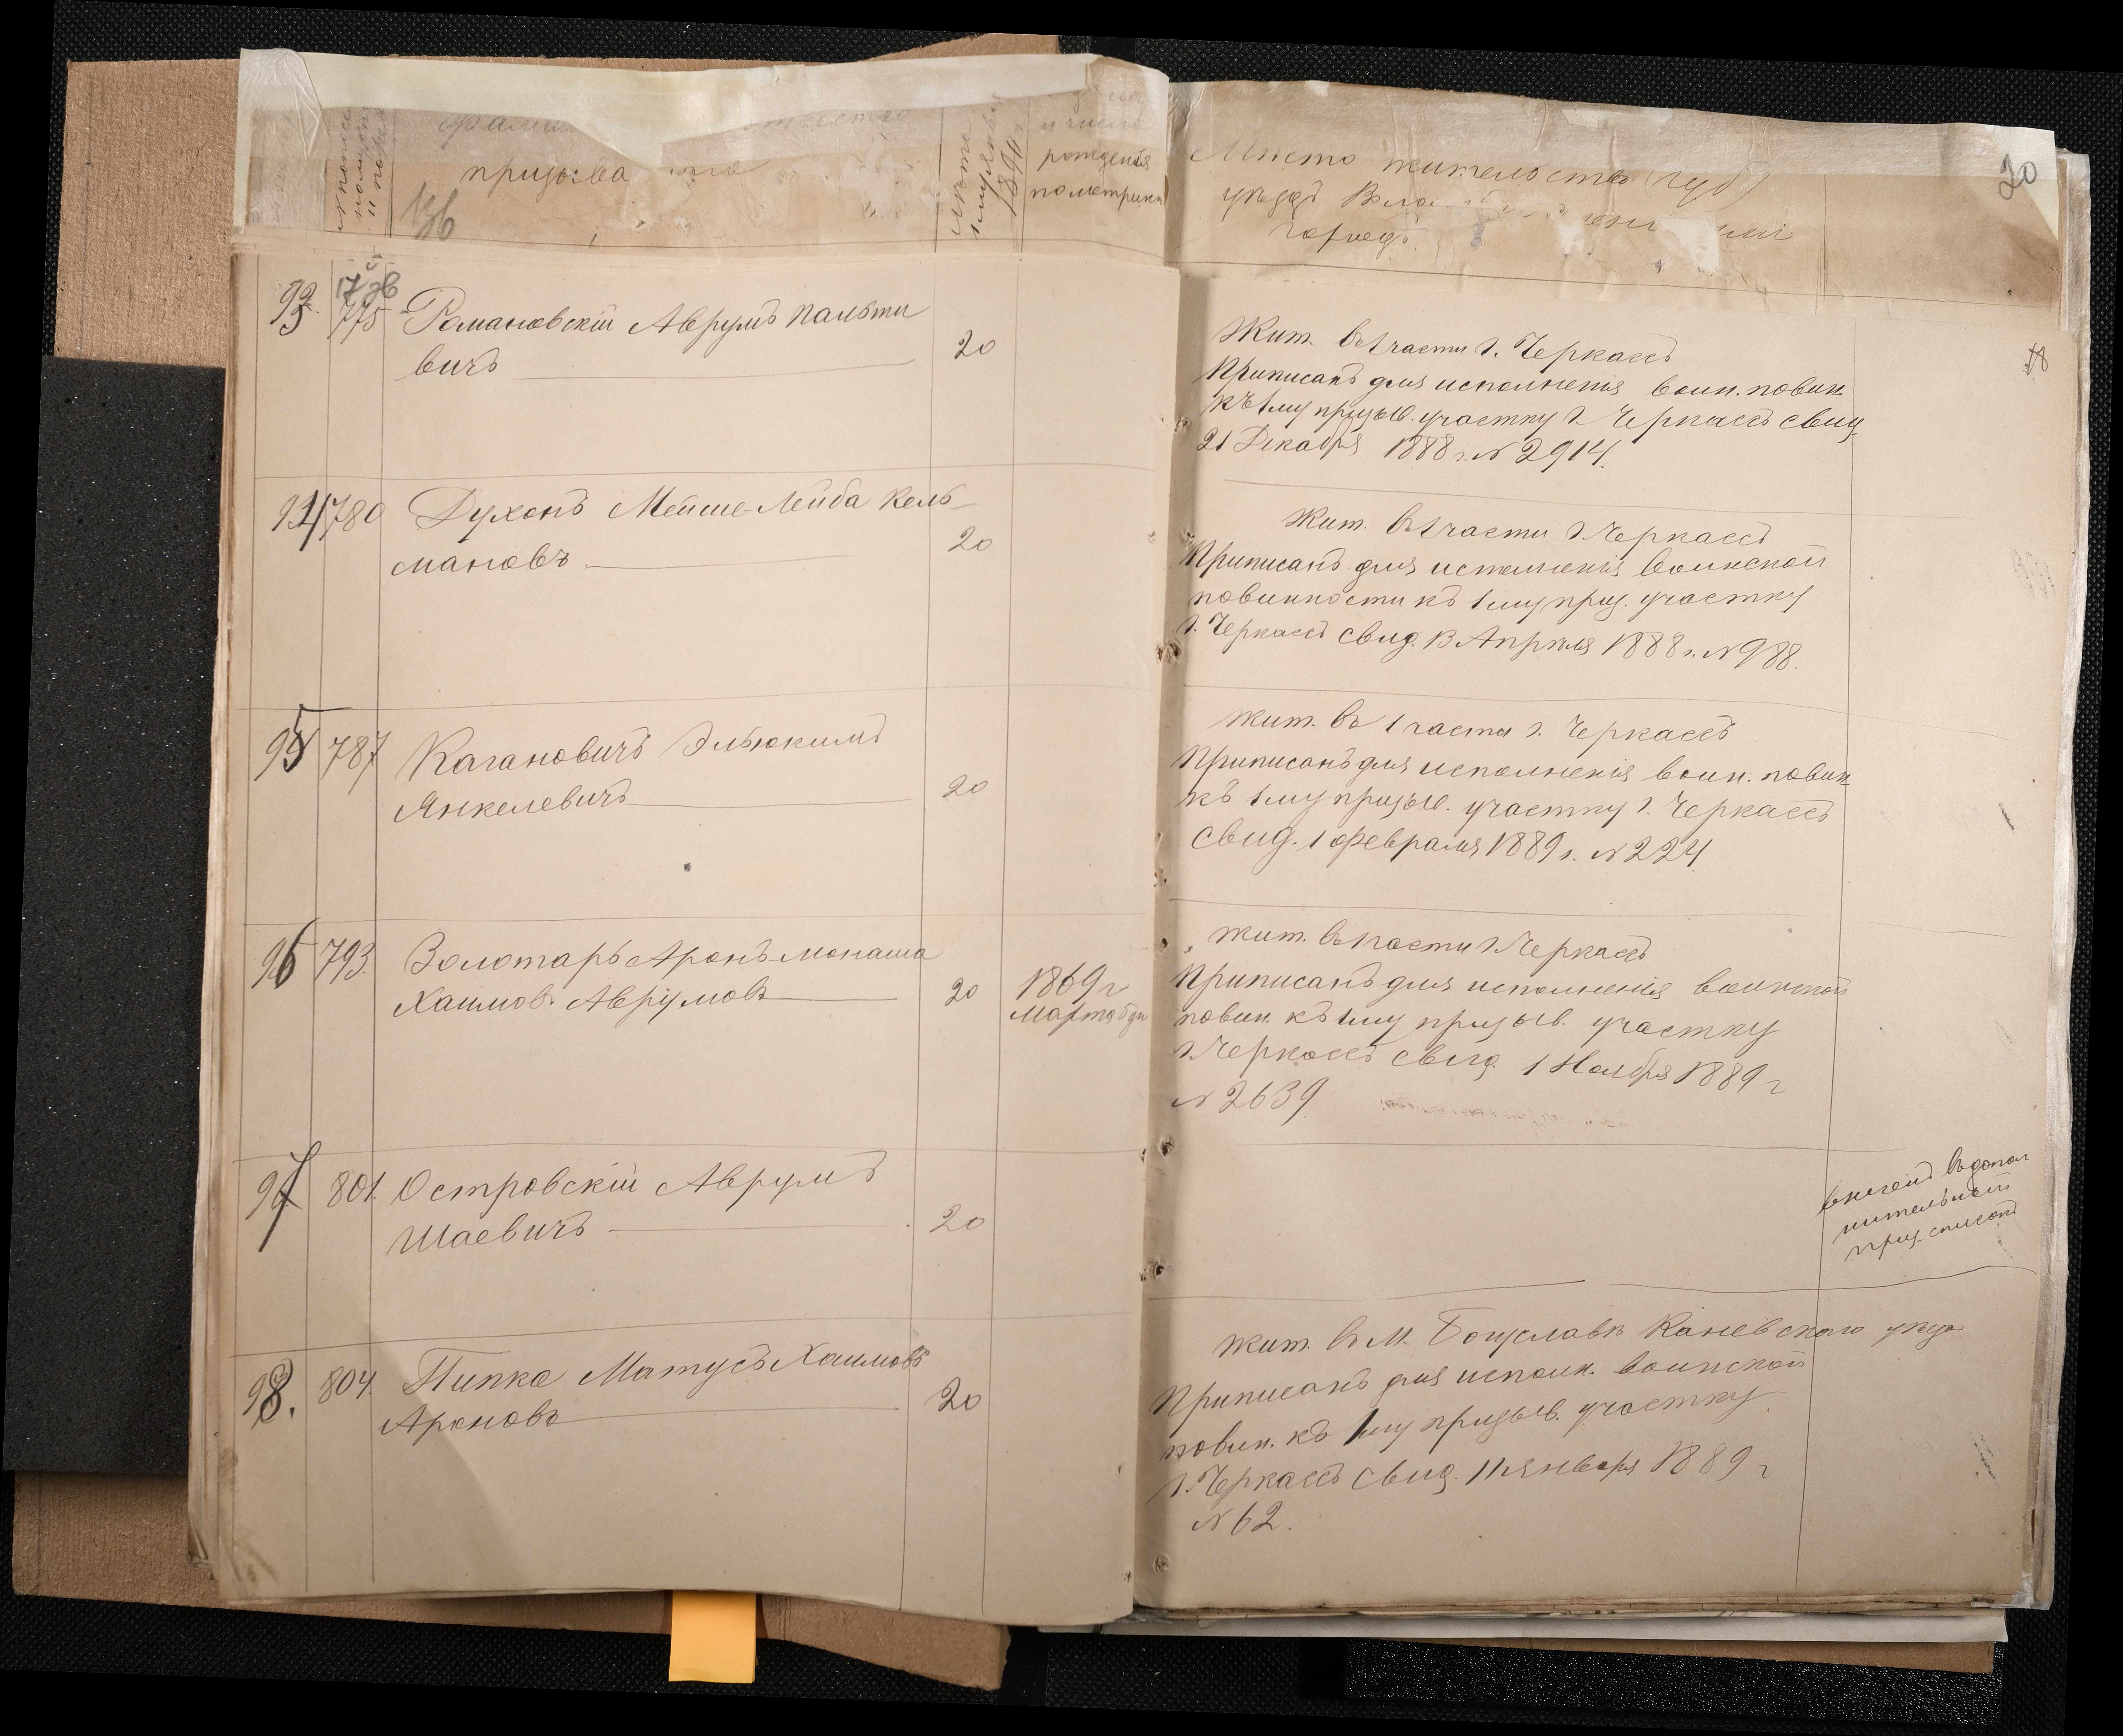 призыва
лѣта
1890 г
и число
рождения
по метрикѣ
Мѣсто жительства (губ)
уѣздъ
20
18
93. 775 Романовскій Аврумъ Пальти
вичъ 20
Жит. въ 1 части г. Черкассъ
Приписанъ для исполненія воин. повин.
къ 1му призыв. участку г. Черкассъ свид.
21 Декабря 1888 г. № 2914.
94 780 Духонъ Мейше-Лейба Кель-
мановъ 20
Жит. въ 1 части г. Черкассъ
Приписанъ для исполненія воинской
повинности къ 1му приз. участку
г. Черкассъ свид. 13 Апрѣля 1888 г. № 988.
95 787 Кагановичъ Эльюкимъ
Янкелевичъ 20
Жит. въ 1 части г. Черкассъ
Приписанъ для исполненія воин. повин.
къ 1му призыв. участку г. Черкассъ
свид. 1 февраля 1889 г. № 224
96 793. Золотарь Аронъ-Монаша
Хаимов. Аврумовъ 20 1869 г
Марта 6 дн
Жит. въ 1 части г. Черкассъ
Приписанъ для исполненія воинской
повин. къ 1му призыв. участку
г. Черкассъ свид. 1 Ноября 1889 г
№ 2639
97 801. Островскій Аврумъ
Шаевичъ 20
внесенъ въ допол
нительный
приз. списокъ
98. 804. Пипка Матусъ Хаимовъ
Ароновъ 20
Жит. въ М. Богуславѣ Каневского уѣзда
Приписанъ для исполн. воинской
повин. къ 1му призыв. участку
г. Черкассъ свид. 11 января 1889 г
№ 62.